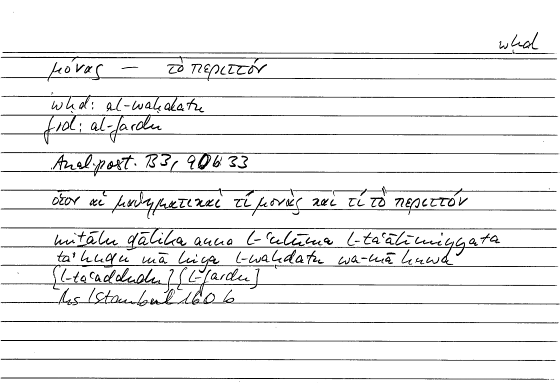 whd
μόνας — τὸ περιττόν
wḥd: al-waḥdatu
frd: al-fardu
Anal. post. B3, 90b33
οἷον αἱ μαθηματικαὶ τί μονὰς καὶ τί τὸ περιττόν
miṯālu ḏālika anna l-ʿulūma l-taʿālīmiyyata
taʾḫuḏu mā hiya l-waḥdatu wa-mā huwa
[l-taʿaddudu] {l-fardu]
Hs Istanbul 160 b